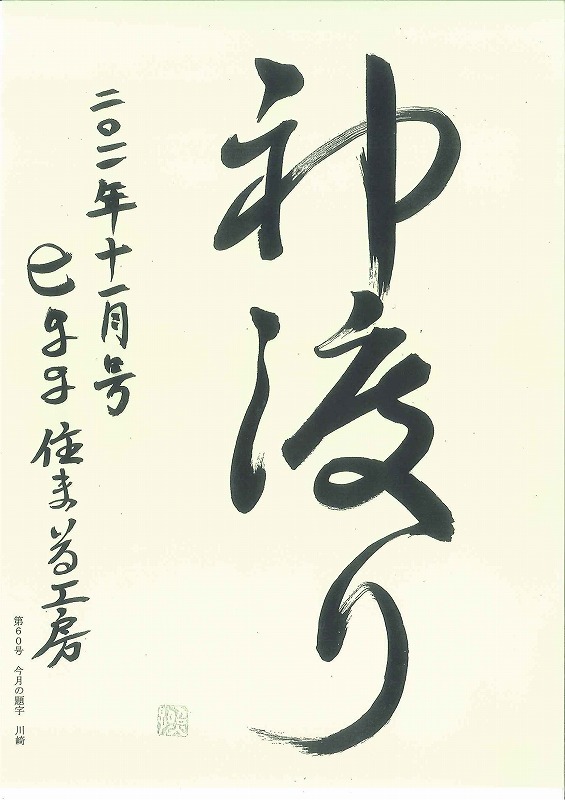 神渡り
二〇一一年十一月号
住まいる工房
第60号 今月の題字 川﨑